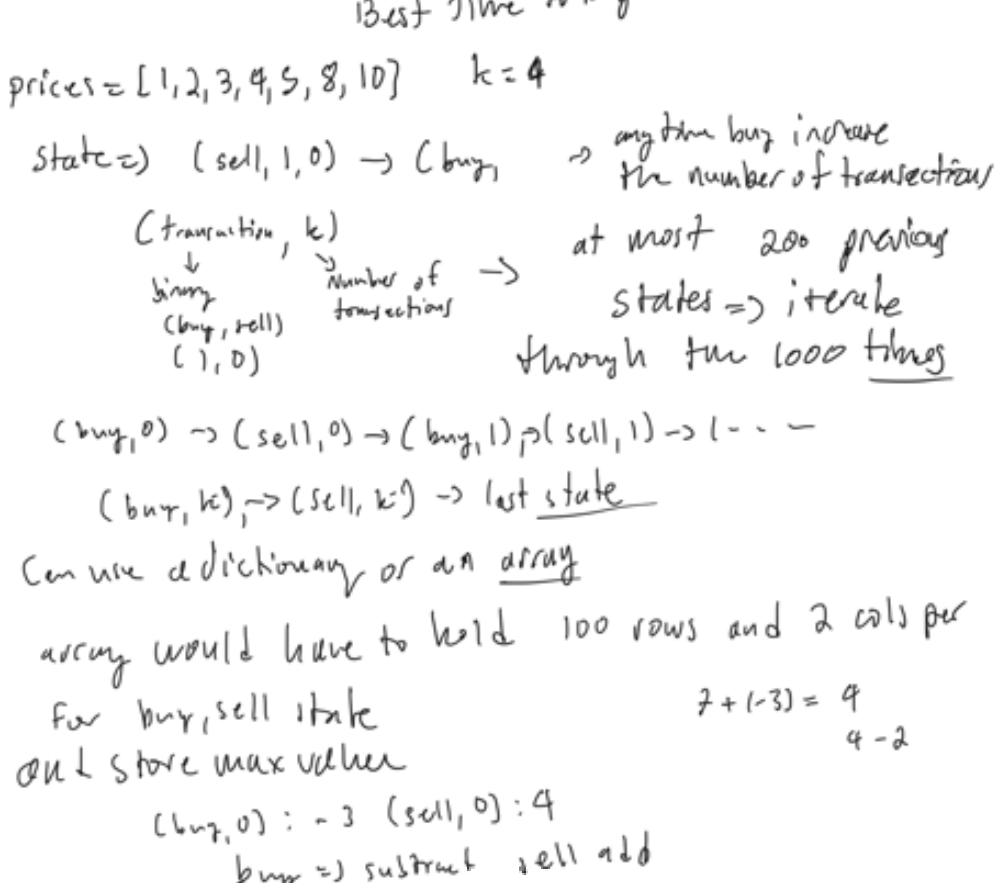 Best Time to
prices = [1,2,3,4,5,8,10] k = 4
state => (sell, 1, 0) -> (buy, -> any time buy increase
the number of transactions
(transaction, k)
binary
(buy, sell)
(1, 0)
Number of
transactions
-> at most 200 previous
states => iterate
through the 1000 times
(buy, 0) -> (sell, 0) -> (buy, 1) -> (sell, 1) -> (- - -
(buy, k), -> (sell, k) -> last state
Can use a dictionary or an array
array would have to hold 100 rows and 2 cols per
for buy, sell state
and store max value
7 + (-3) = 4
4 - 2
(buy, 0) : -3 (sell, 0) : 4
buy => subtract sell add